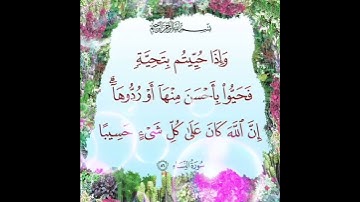 بسم الله الرحمن الرحيم
وَإِذَا حُيِّيتُم بِتَحِيَّةٍ
فَحَيُّوا۟ بِأَحْسَنَ مِنْهَآ أَوْ رُدُّوهَآ ۗ
إِنَّ ٱللَّهَ كَانَ عَلَىٰ كُلِّ شَىْءٍ حَسِيبًا
سورة النساء